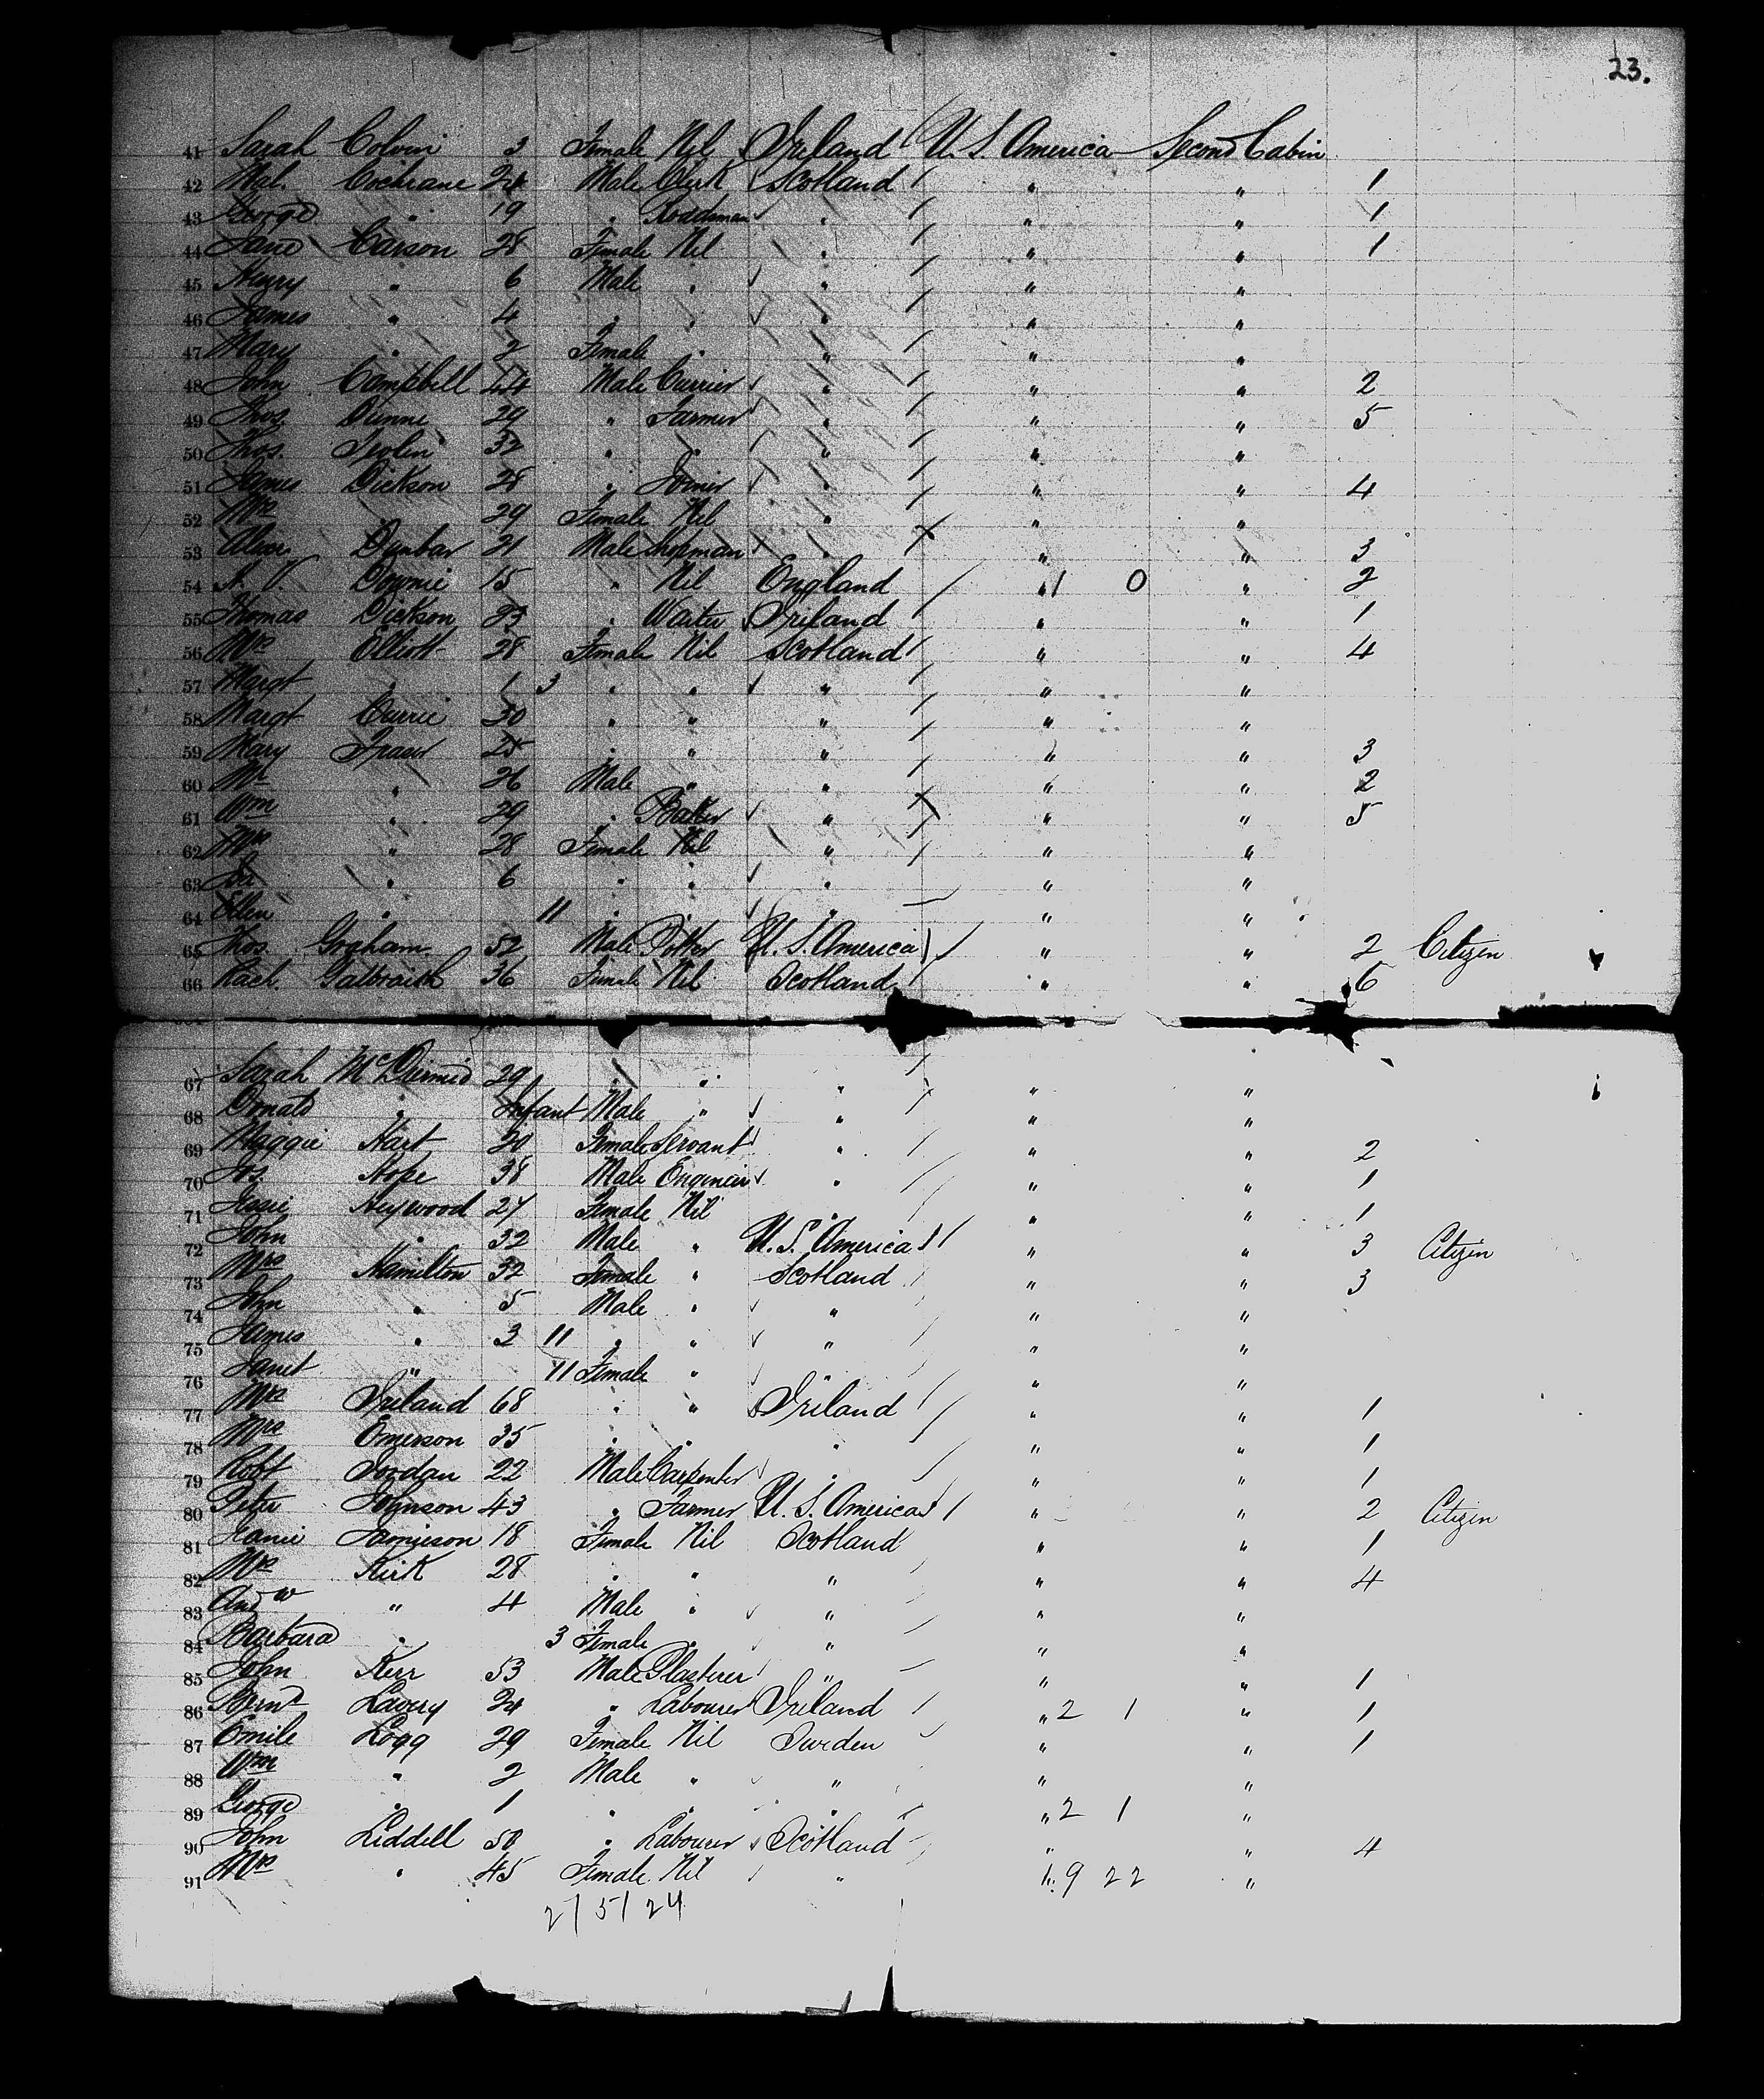 23.
41 Sarah Colvin 3 Female Nil Ireland U. S. America Second Cabin
42 Mal. Cochrane 24 Male Clerk Scotland " " 1
43 George " 19 " Roadman " " " 1
44 Jane Carson 28 Female Nil " " " 1
45 Henry " 6 Male " " " "
46 James " 4 " " " " "
47 Mary " 2 Female " " " "
48 John Campbell 44 Male Currier " " " 2
49 Thos. Dunne 29 " Farmer " " " 5
50 Thos. 32 " " " " "
51 James Dickson 28 " Joiner " " " 4
52 Mrs " 29 Female Nil " " "
53 Alexr. Dunbar 21 Male Shopman " " " 3
54 Downie 15 " Nil England " 1 0 " 2
55 Thomas Dickson 23 " Waiter Ireland " " 1
56 Mrs Elliott 28 Female Nil Scotland " " 4
57 Margt " 1 3 " " " " "
58 Margt Currie 30 " " " " "
59 Mary Fraser 25 " " " " " 3
60 Mr " 26 Male " " " " 2
61 Wm " 29 " Baker " " " 5
62 Mrs " 28 Female Nil " " "
63 " 6 " " " " "
64 Ellen " 11 " " " " "
65 Thos. Graham 52 Male Potter U. S. America " " 2 Citizen
66 Rach. Galbraith 36 Female Nil Scotland " " 6
67 Sarah McDermid 29 " " " " "
68 Donald " Infant Male " " " "
69 Maggie Hart 20 Female Servant " " " 2
70 Jos. Hope 38 Male Engineer " " " 1
71 Jessie Heywood 27 Female Nil " " " 1
72 John " 32 Male " U. S. America " " 3 Citizen
73 Mrs Hamilton 32 Female " Scotland " " 3
74 John " 5 Male " " " "
75 James " 3 11 " " " " "
76 Janet " 11 Female " " " "
77 Mrs Ireland 68 " " Ireland " " 1
78 Mrs Emerson 35 " " " " " 1
79 Robt Jordan 22 Male Carpenter " " " 1
80 Peter Johnson 43 " Farmer U. S. America " " 2 Citizen
81 Jeanie Jamieson 18 Female Nil Scotland " " 1
82 Mrs Kirk 28 " " " " " 4
83 Andw " 4 Male " " " "
84 Barbara " 3 Female " " " "
85 John Kerr 53 Male Plasterer " " " 1
86 Bernd Lavery 24 " Labourer Ireland " 2 1 " 1
87 Emile Logg 29 Female Nil Sweden " " 1
88 Wm " 2 Male " " " "
89 George " 1 " " " " 2 1 "
90 John Liddell 50 " Labourer Scotland " " 4
91 Mrs " 45 Female Nil " " 9 22 "
2/ 5/ 24